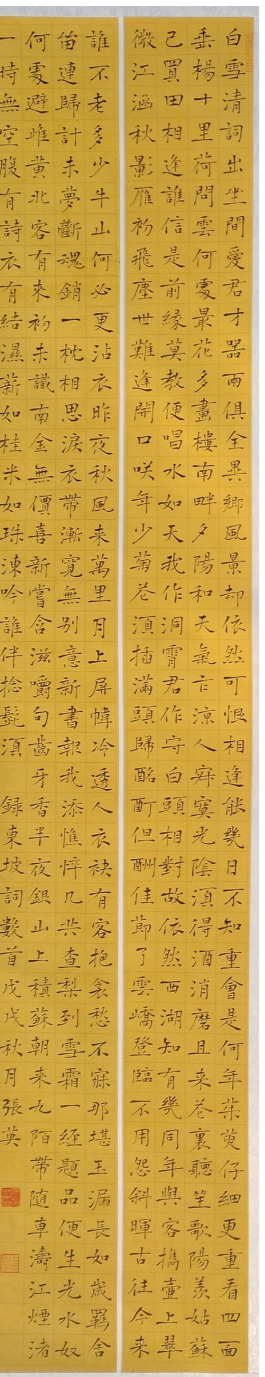 白雪清詞出坐間愛君才器兩俱全異鄉風景却依然可恨相逢能幾日不知重會是何年茱萸仔細更重看四面
垂楊十里荷問雲何處最花多畫樓南畔夕陽和天氣乍涼人寂寞光陰須得酒消磨且来花裏聽笙歌陽羨姑蘇
已買田相逢誰信是前緣莫教便唱水如天我作洞霄君作守白頭相對故依然西湖知有幾同年與客攜壺上翠
微江涵秋影雁初飛塵世難逢開口咲年少菊花須插滿頭歸酩酊但酬佳節了雲嶠登臨不用怨斜暉古往今来
誰不老多少牛山何必更沾衣昨夜秋風来萬里月上屏幃冷透人衣袂有客抱衾愁不寐那堪玉漏長如歲羈舍
留連歸計未夢斷魂銷一枕相思淚衣帶漸寬無別意新書報我添憔悴几共查梨到雪霜一經題品便生光水奴
何處避雌黃北客有来初未識南金無價喜新嘗含滋嚼句齒牙香半夜銀山上積蘇朝来九陌帶随車濤江煙渚
一時無空腹有詩衣有結濕薪如桂米如珠凍吟誰伴捻髭須 録東坡詞數首戊戌秋月張英